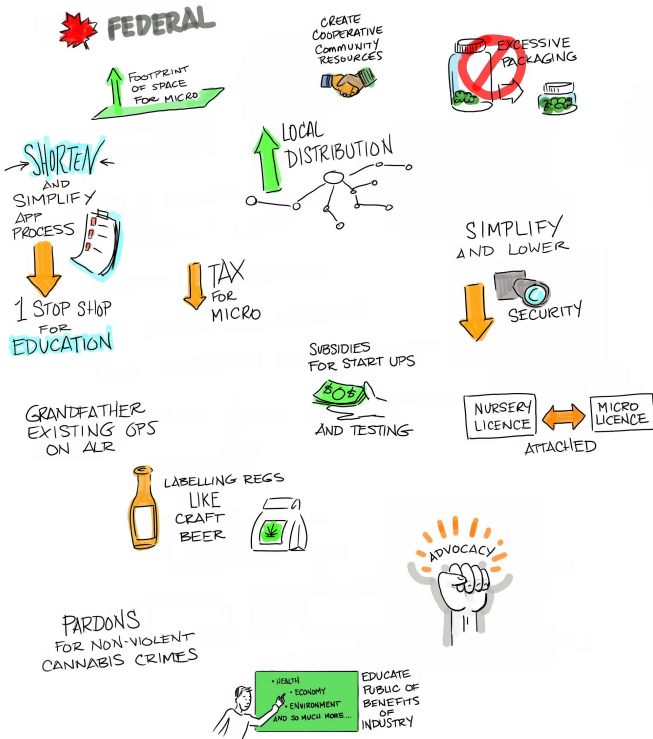 FEDERAL
FOOTPRINT
OF SPACE
FOR MICRO
CREATE
COOPERATIVE
COMMUNITY
RESOURCES
EXCESSIVE
PACKAGING
SHORTEN
AND
SIMPLIFY
APP
PROCESS
1 STOP SHOP
FOR
EDUCATION
LOCAL
DISTRIBUTION
TAX
FOR
MICRO
SIMPLIFY
AND LOWER
SECURITY
SUBSIDIES
FOR START UPS
$0$
AND TESTING
NURSERY
LICENCE
MICRO
LICENCE
ATTACHED
GRANDFATHER
EXISTING OPS
ON ALR
LABELLING REGS
LIKE
CRAFT
BEER
ADVOCACY
PARDONS
FOR NON-VIOLENT
CANNABIS CRIMES
• HEALTH
• ECONOMY
• ENVIRONMENT
AND SO MUCH MORE...
EDUCATE
PUBLIC OF
BENEFITS
OF
INDUSTRY